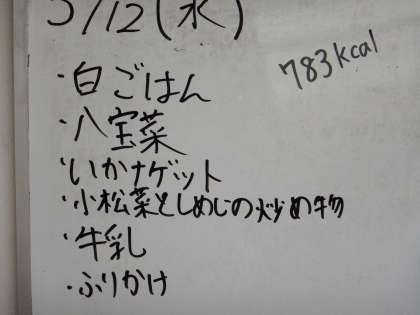 5/12(水)
783kcal
・白ごはん
・八宝菜
・いかナゲット
・小松菜としめじの炒め物
・牛乳
・ふりかけ